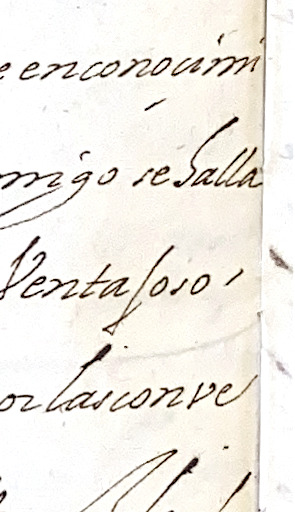 e enconocimi
migo se halla
Ventajoso,
or lasconve